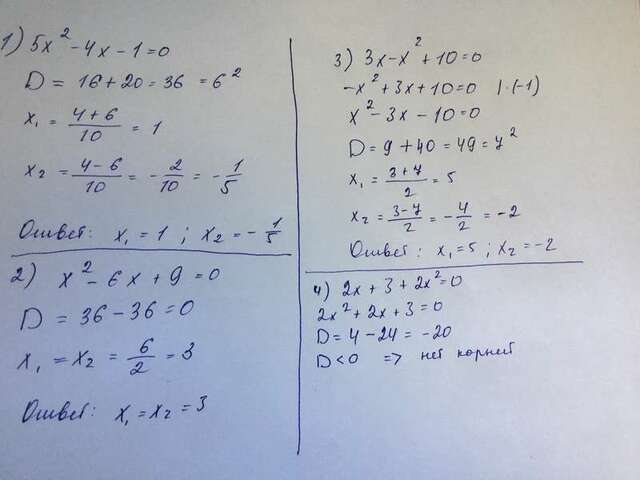 1) 5x² - 4x - 1 = 0
D = 16 + 20 = 36 = 6²
x₁ = (4 + 6)/10 = 1
x₂ = (4 - 6)/10 = -2/10 = -1/5
Ответ: x₁ = 1 ; x₂ = -1/5
2) x² - 6x + 9 = 0
D = 36 - 36 = 0
x₁ = x₂ = 6/2 = 3
Ответ: x₁ = x₂ = 3
3) 3x - x² + 10 = 0
-x² + 3x + 10 = 0 |·(-1)
x² - 3x - 10 = 0
D = 9 + 40 = 49 = 7²
x₁ = (3 + 7)/2 = 5
x₂ = (3 - 7)/2 = -4/2 = -2
Ответ: x₁ = 5 ; x₂ = -2
4) 2x + 3 + 2x² = 0
2x² + 2x + 3 = 0
D = 4 - 24 = -20
D < 0 => нет корней